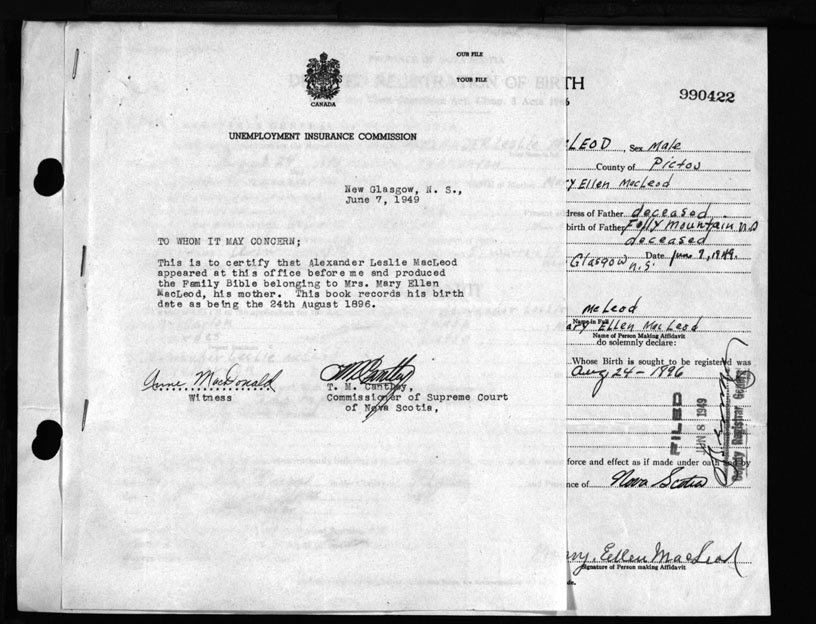 OUR FILE
YOUR FILE
CANADA
UNEMPLOYMENT INSURANCE COMMISSION
New Glasgow, N. S.,
June 7, 1949
TO WHOM IT MAY CONCERN;
This is to certify that Alexander Leslie MacLeod
appeared at this office before me and produced
the Family Bible belonging to Mrs. Mary Ellen
MacLeod, his mother. This book records his birth
date as being the 24th August 1896.
Anne MacDonald
Witness
T. M. Cantley,
Commissioner of Supreme Court
of Nova Scotia,
TH
990422
LEOD, Sex Male
County of Pictou
y Ellen MacLeod
dress of Father deceased
birth of Father Folly Mountain N.S
deceased
Glasgow N.S. Date June 7, 1949.
McLeod
Name in Full
ary Ellen MacLeod
Name of Person Making Affidavit
do solemnly declare:
Whose Birth is sought to be registered was
Aug 24-1896
FILED
JUN 8 1949
Deputy Registrar General
force and effect as if made under oath and by
nce of Nova Scotia
Mary Ellen MacLeod
Signature of Person making Affidavit